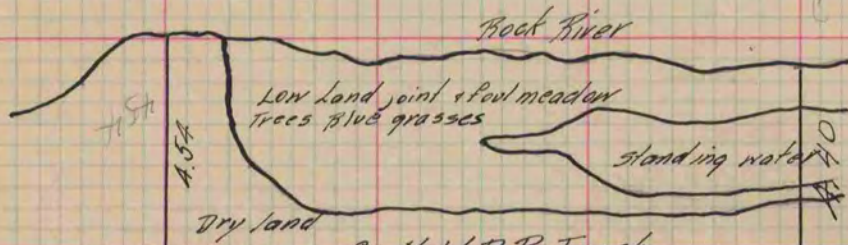 Rock River
Low Land joint & foul meadow
Trees Blue grasses
454
A.54
Standing water
Dry land